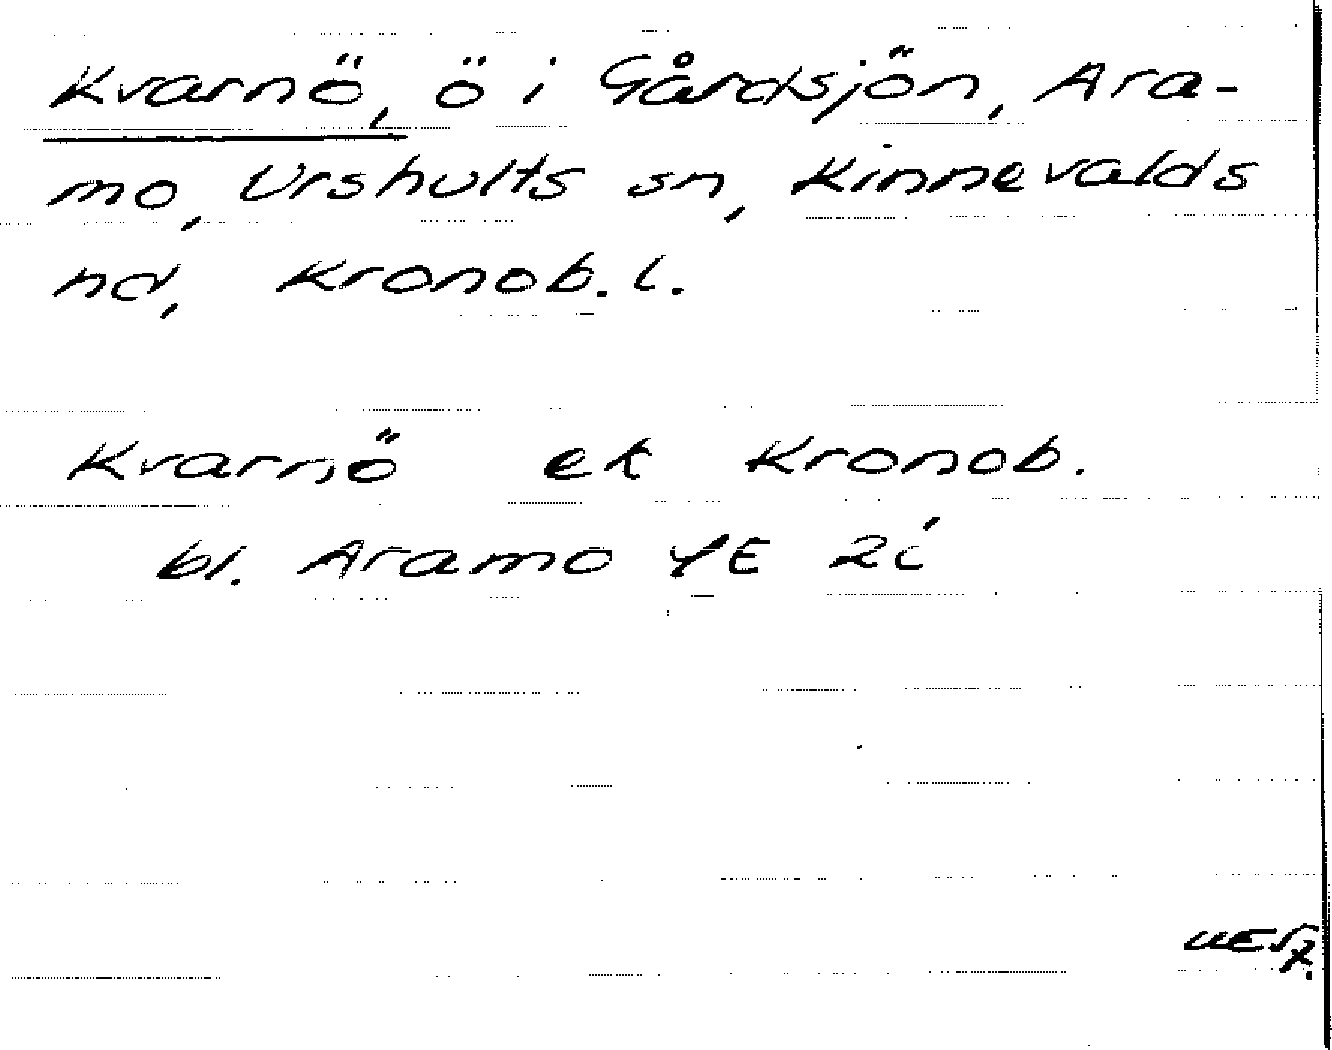 Kvarnö, ö i Gårdsjön, Ara-
mo, Urshults sn, Kinnevalds
hd, Kronob. l.
Kvarnö ek Kronob.
bl. Aramo 4E 2i